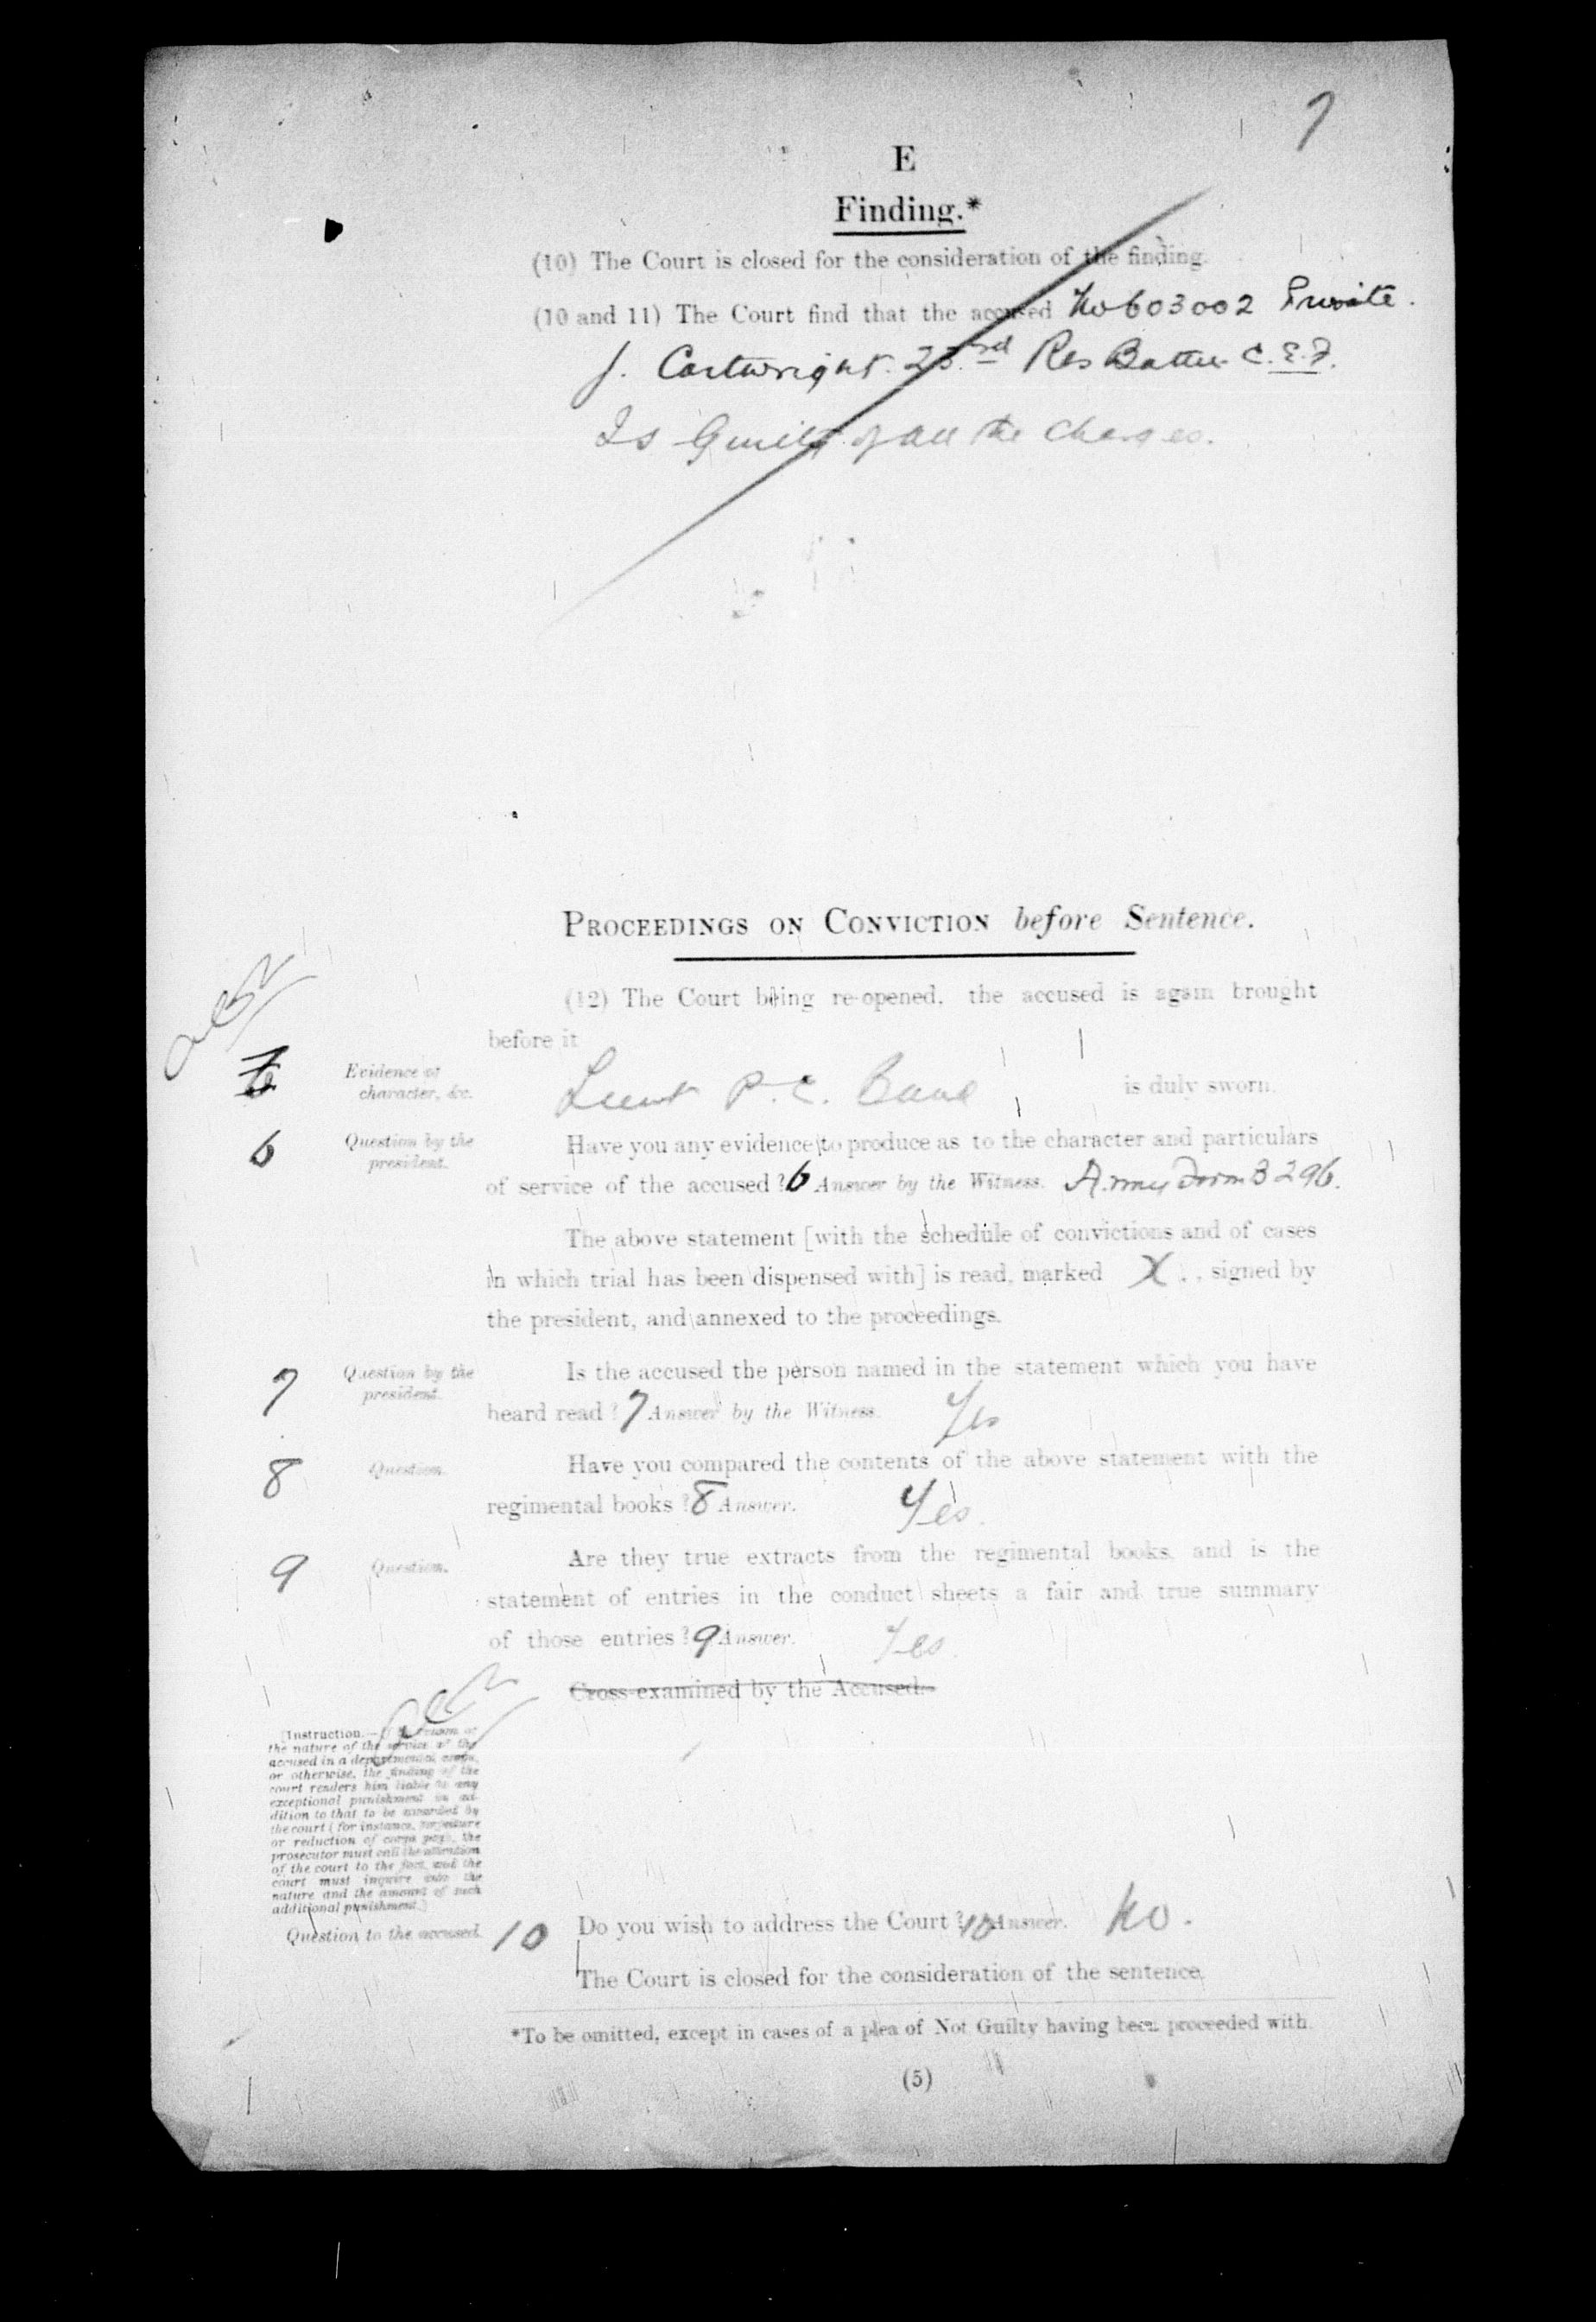 7
E
Finding.*
(10) The Court is closed for the consideration of the finding.
(10 and 11) The Court find that the accused No 603002 Private.
J. Cartwright. 23.rd Res Battn C.E.F.
Is Guilty of all the Charges.
PROCEEDINGS ON CONVICTION before Sentence.
(12) The Court being re-opened, the accused is again brought
before it
Evidence of
character, &c.
Lieut P. C. is duly sworn.
6 Question by the
president.
Have you any evidence to produce as to the character and particulars
of service of the accused? 6 Answer by the Witness. Army Form B 296.
The above statement [with the schedule of convictions and of cases
in which trial has been dispensed with] is read, marked X., signed by
the president, and annexed to the proceedings.
7 Question by the
president.
Is the accused the person named in the statement which you have
heard read? 7 Answer by the Witness. Yes
8 Question.
Have you compared the contents of the above statement with the
regimental books? 8 Answer. Yes.
9 Question.
Are they true extracts from the regimental books, and is the
statement of entries in the conduct sheets a fair and true summary
of those entries? 9 Answer. Yes.
Cross-examined by the Accused.
[Instruction.—If by reason of
the nature of the service of the
accused in a departmental corps,
or otherwise, the finding of the
court renders him liable to any
exceptional punishment in ad-
dition to that to be awarded by
the court (for instance, forfeiture
or reduction of corps pay), the
prosecutor must call the attention
of the court to the fact, and the
court must inquire into the
nature and the amount of such
additional punishment.]
Question to the accused.
10 Do you wish to address the Court? 10 Answer. No.
The Court is closed for the consideration of the sentence.
*To be omitted, except in cases of a plea of Not Guilty having been proceeded with.
(5)